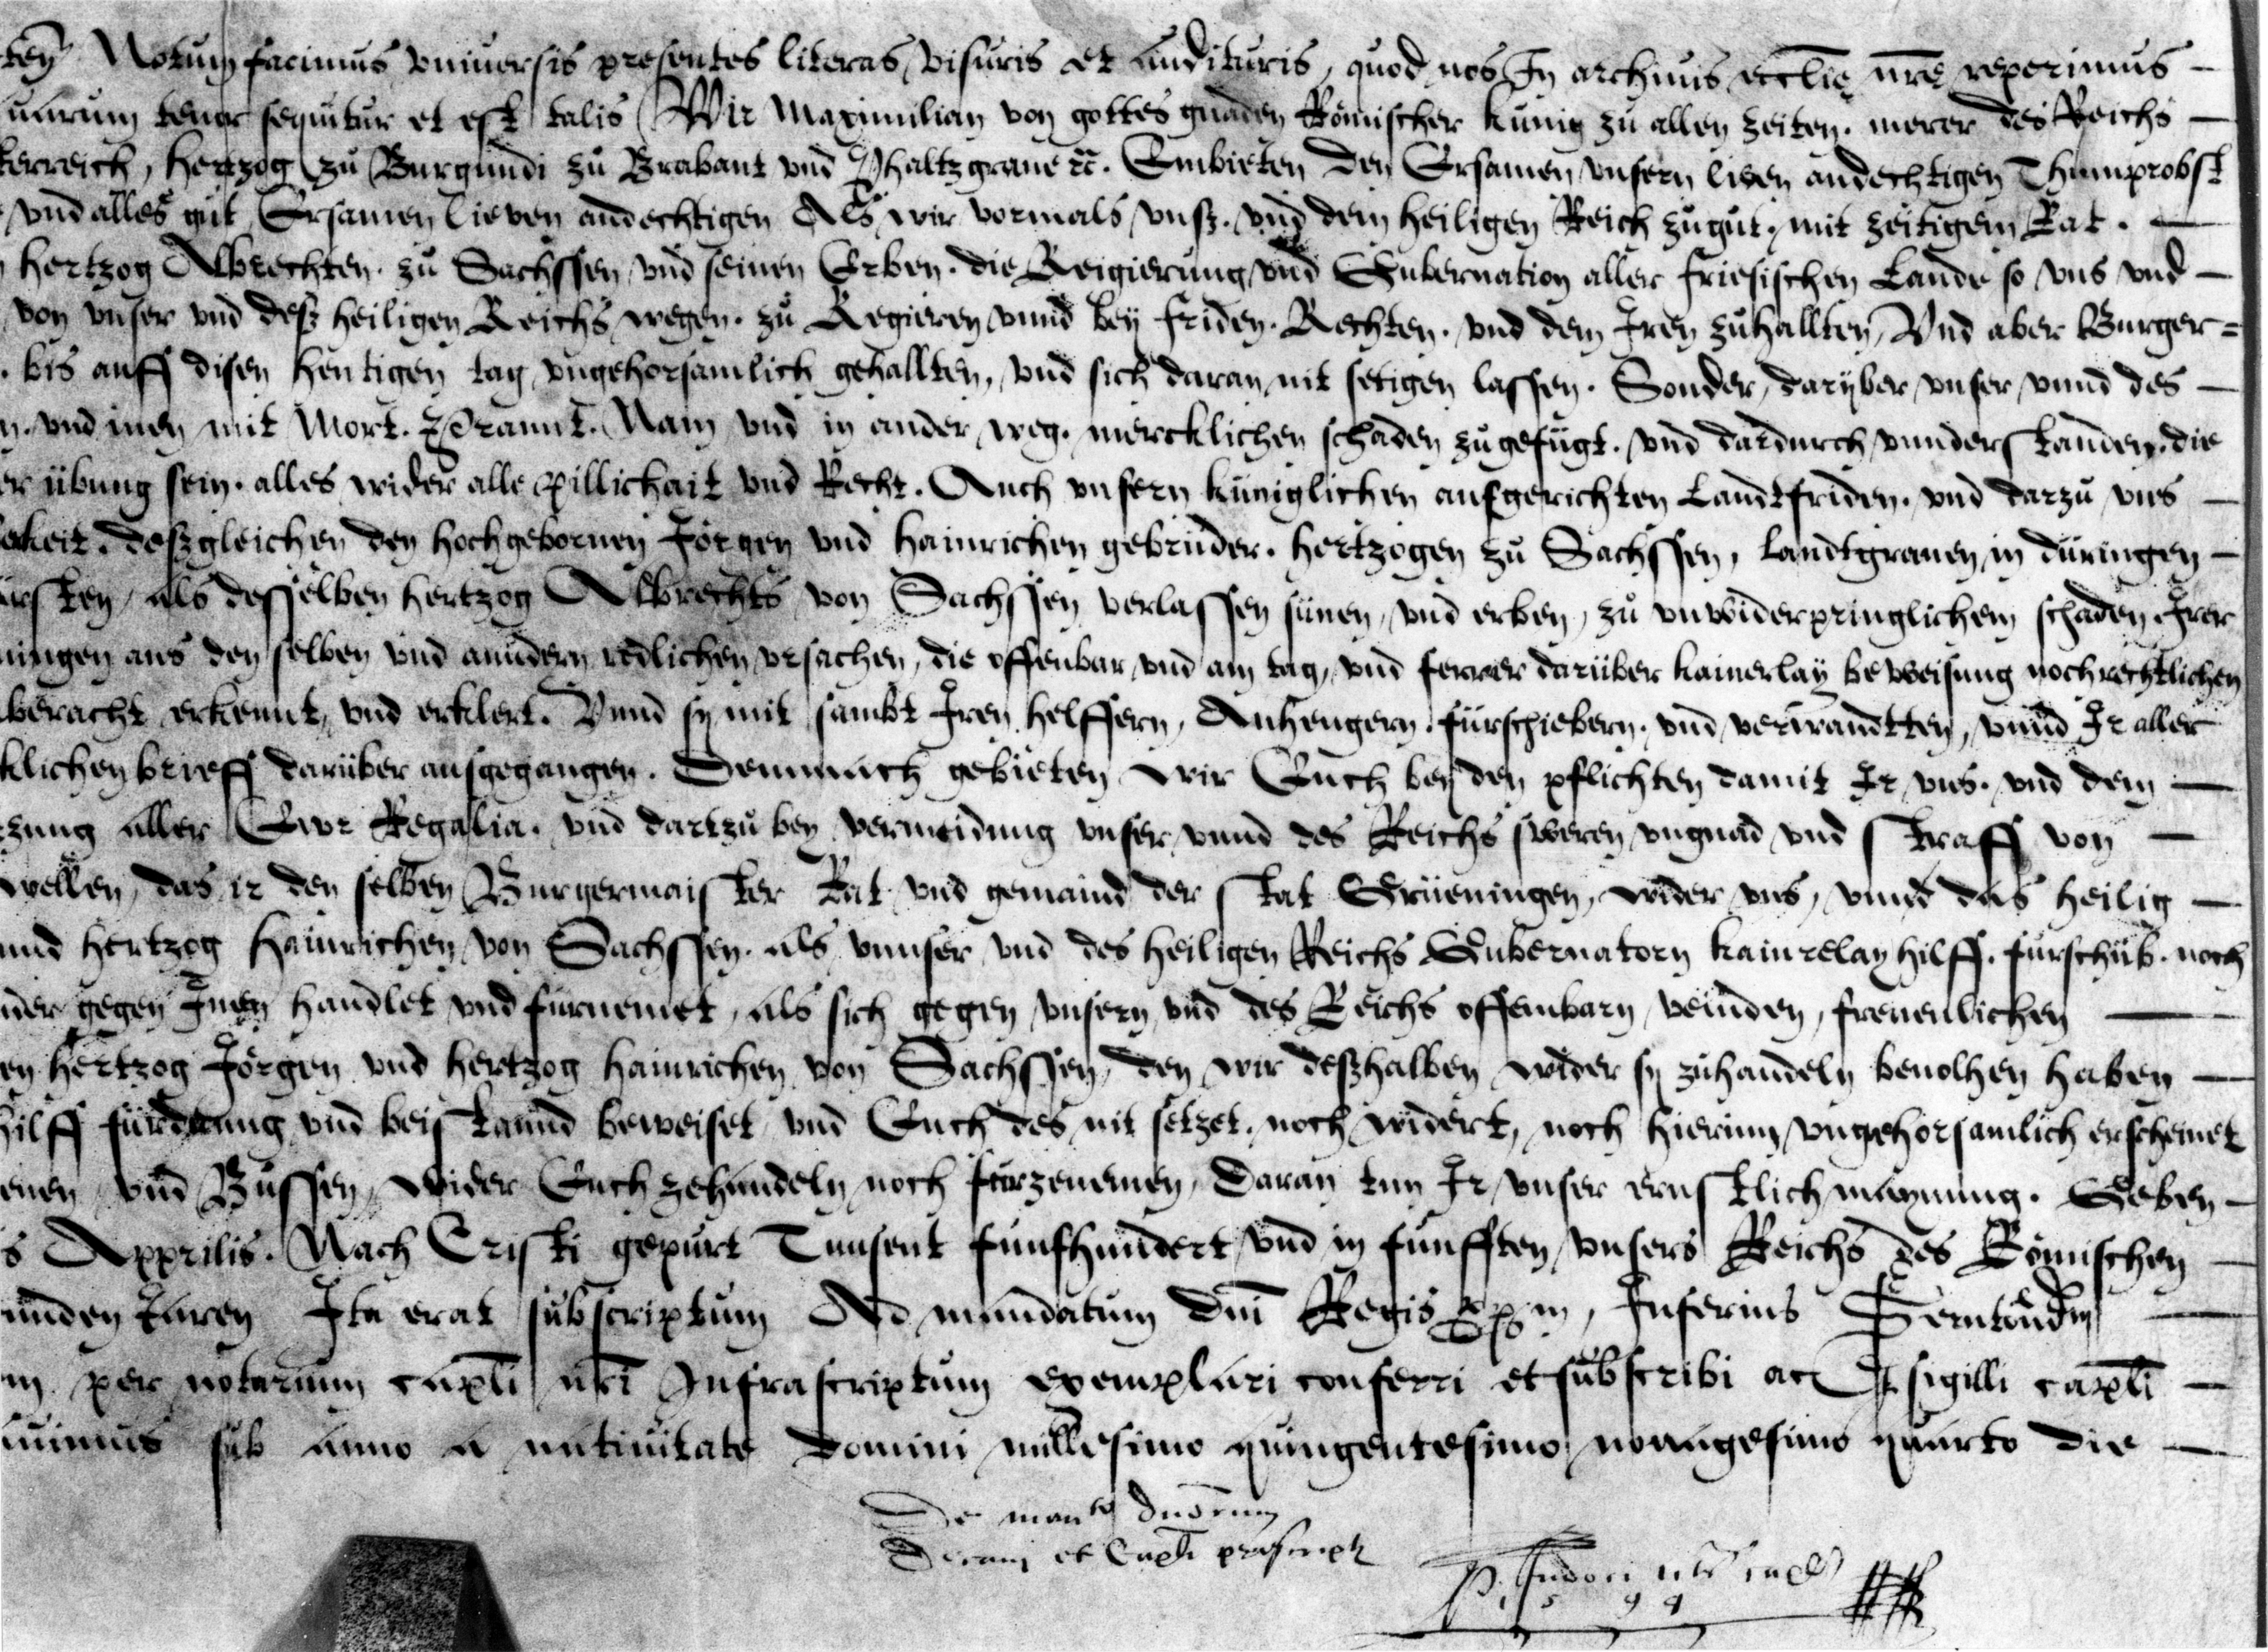 ten Notum facimus vniuersis presentes literas visuris et audituris, quod nos In archiuis eccl̄ie nr̄e reperimus —
quarum tenor sequitur et est talis Wir Maximilian von gottes gnaden Römischer kunig zu allen zeiten. merer des Reichs —
terreich, Hertzog zu Burgundi zu Brabant vnd Phaltzgraue ꝛc. Embieten den Ersamen vnsern lieben andechtigen Thumprobst
vnd alles gut Ersamen lieben andechtigen Als wir vormals vnß. vnd dem heiligen Reich zugut. mit zeitigem Rat. —
hertzog Albrechten. zu Sachssen vnd seinen Erben. die Reigierung vnd Gubernation aller friesischen Lande so vns vnd —
von vnser vnd deß heiligen Reichs wegen. zu Regieren vnnd bey friden. Rechten. vnd dem Iren zuhallten, Vnd aber Burger=
. bis auff disen heutigen tag vngehorsamlich gehallten, vnd sich daran nit setigen lassen. Sonder, daryber vnser vnnd des —
n. vnd inen mit Mort. Prannt. Nam vnd in ander weg. mercklichen schaden zugefügt. vnd dardurch vnnderstanden. die
er übung sein. alles wider alle pillichait vnd Recht. Auch vnsern küniglichen aufgerichten Landtfriden. vnd darzu vns —
keit. deßgleichen den hochgebornen Jörgen vnd Hainrichen gebrüder. Hertzogen zu Sachssen, Landtgrauen in düringen —
ursten, als desselben hertzog Albrechts von Sachssen verlassen sünen, vnd erben, zu vnwiderpringlichem schaden. Irer
ningen aus den selben vnd anndern redlichen vrsachen, die offenbar vnd am tag, vnd ferrer darüber kainerlay beweisung noch rechtlichen
beracht erkennt, vnd erklert. Vnnd sy mit sambt Iren helffern, Anhengern. fürschiebern. vnd verwandtten, vnnd Ir aller
klichen brieff darüber ausgegangen. Demnnach gebieten wir Euch bey den pflichten damit Ir vns. vnd dem —
zung aller Ewr Regalia. vnd dartzu bey vermeidung vnser vnnd des Reichs sweren vngnad vnd straff von —
wellen, das ir den selben Burgermaister Rat vnd gemaind der stat Grüeningen, wider vns, vnnd das heilig —
und hertzog Hainrichen von Sachssen. als vnnser vnd des heiligen Reichs Gubernatorn kainrelay hilff. furschub. noch
nder gegen Inen handlet vnd furnemet, als sich gegen vnsern vnd des Reichs offembarn veinden, freuenlichen —
en hertzog Jörgen vnd hertzog Hainrichen von Sachssen, den wir deßhalben wider sy zuhandeln beuolhen haben —
hilff fürdrung vnd beistannd beweiset vnd Euch des nit setzet. noch widert, noch hierinn vngehorsamlich erscheinet
enen vnd Bussen, wider Euch zehandeln noch furzenemen, Daran tun Ir vnser ernstlich maynung. Geben —
s Apprilis. Nach Cristi gepurt Tausent funfhundert vnd in funfften, vnsers Reichs des Römischen —
unden Jaren Ita erat subscriptum Ad mandatum dn̄i Regis ppm, Inferius —
m per notarium capl̄i nr̄i Infrascriptum exemplari conferri et subscribi ac sigilli capl̄i —
uimus sub anno a natiuitate Domini millesimo quingentesimo nonagesimo quarto die —
De man^to dnōrum
Decani et Capl̄i prescript
1594